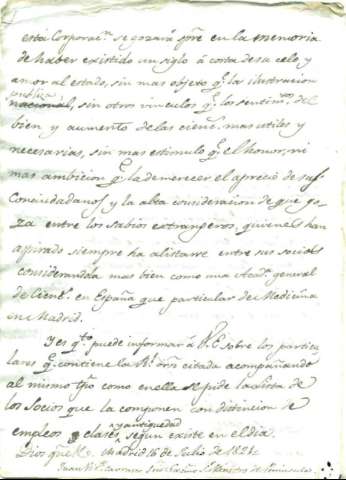 esta Corporacn. se gozará spre en la memoria
de haber existido un siglo á costa de su celo, y
amor al estado, sin mas objeto q.e la ilustracion
publica
nacional, sin otros vinculos q.e los sentim.tos del
bien y aumento de las cienc.s mas utiles y
necesarias, sin mas estimulo q.e el honor, ni
mas ambicion q.e la de merecer el aprecio de sus
Conciudadanos y la alta consideracion de que go-
za entre los Sabios extrangeros, quienes han
aspirado siempre ha alistarse entre sus socios
considerandola mas bien como una Acad.a general
de Cienc.s en España que particular de Medicina
en Madrid.
Y es q.to puede informar á V.E. sobre los particu-
lares q.e contiene la R.l orn citada acompañando
al mismo tpo como en ella se pide la lista de
los Socios que la componen con distincion de
y antiguedad
empleos clases, segun existe en el dia.
Dios gue &. Madrid 16 de Julio de 1821.